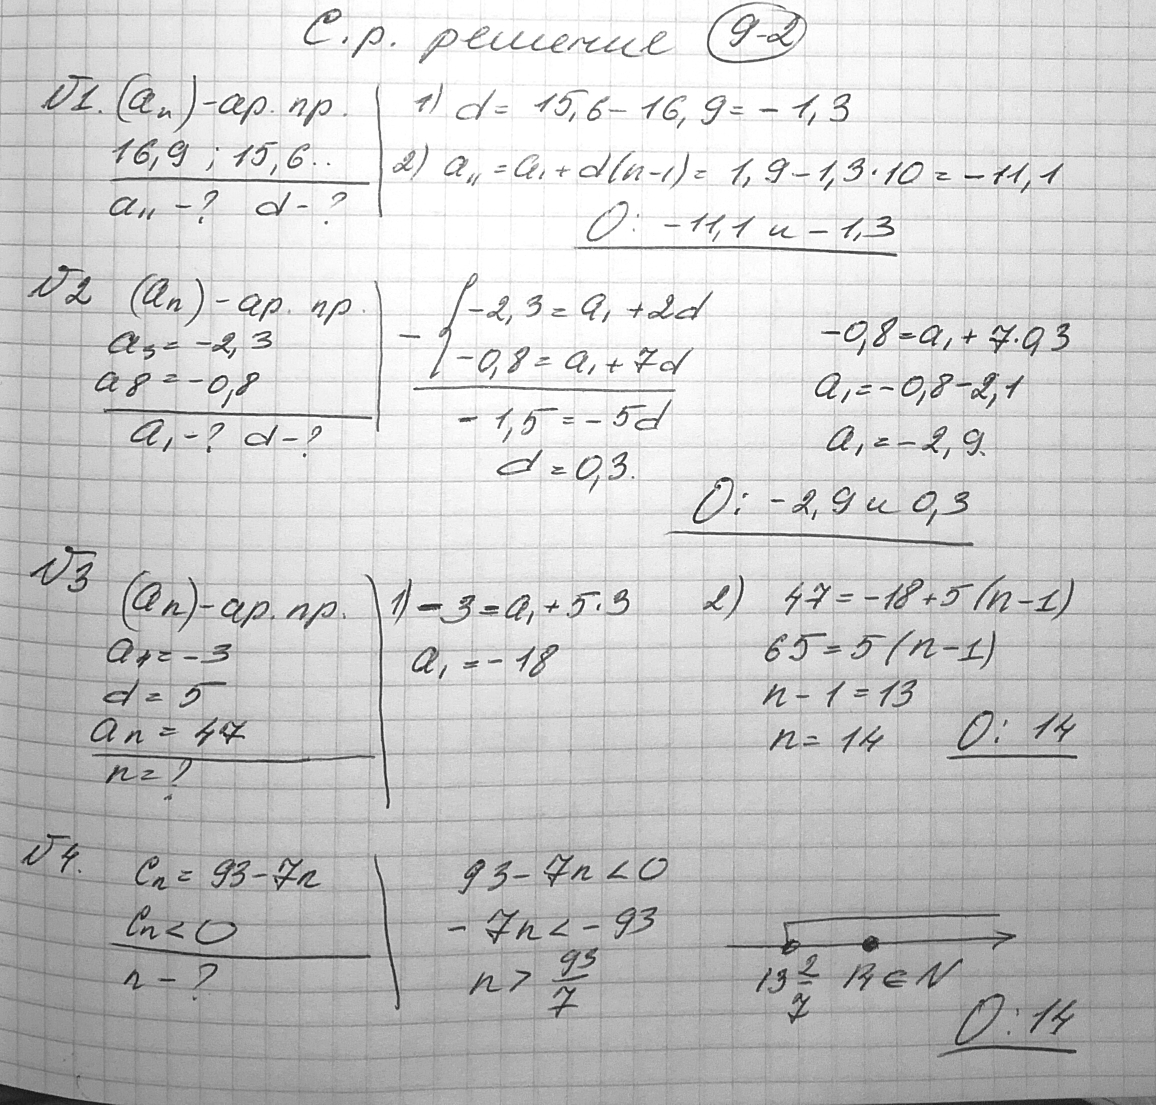 С.р. решение 9-2
№1. (aₙ) - ар. пр.
16,9 ; 15,6..
a₁₁ - ? d - ?
1) d = 15,6 - 16,9 = -1,3
2) a₁₁ = a₁ + d(n-1) = 1,9 - 1,3·10 = -11,1
О: -11,1 и -1,3
№2 (aₙ) - ар. пр.
a₃ = -2,3
a8 = -0,8
a₁ - ? d - ?
- { -2,3 = a₁ + 2d
-0,8 = a₁ + 7d
-1,5 = -5d
d = 0,3.
-0,8 = a₁ + 7·0,3
a₁ = -0,8 - 2,1
a₁ = -2,9.
О: -2,9 и 0,3
№3
(aₙ) - ар. пр.
a₇ = -3
d = 5
aₙ = 47
n = ?
1) -3 = a₁ + 5·3
a₁ = -18
2) 47 = -18 + 5(n-1)
65 = 5(n-1)
n - 1 = 13
n = 14
О: 14
№4.
cₙ = 93 - 7n
cₙ < 0
n - ?
93 - 7n < 0
-7n < -93
n > 93/7
13 2/7 14 ∈ N
О: 14